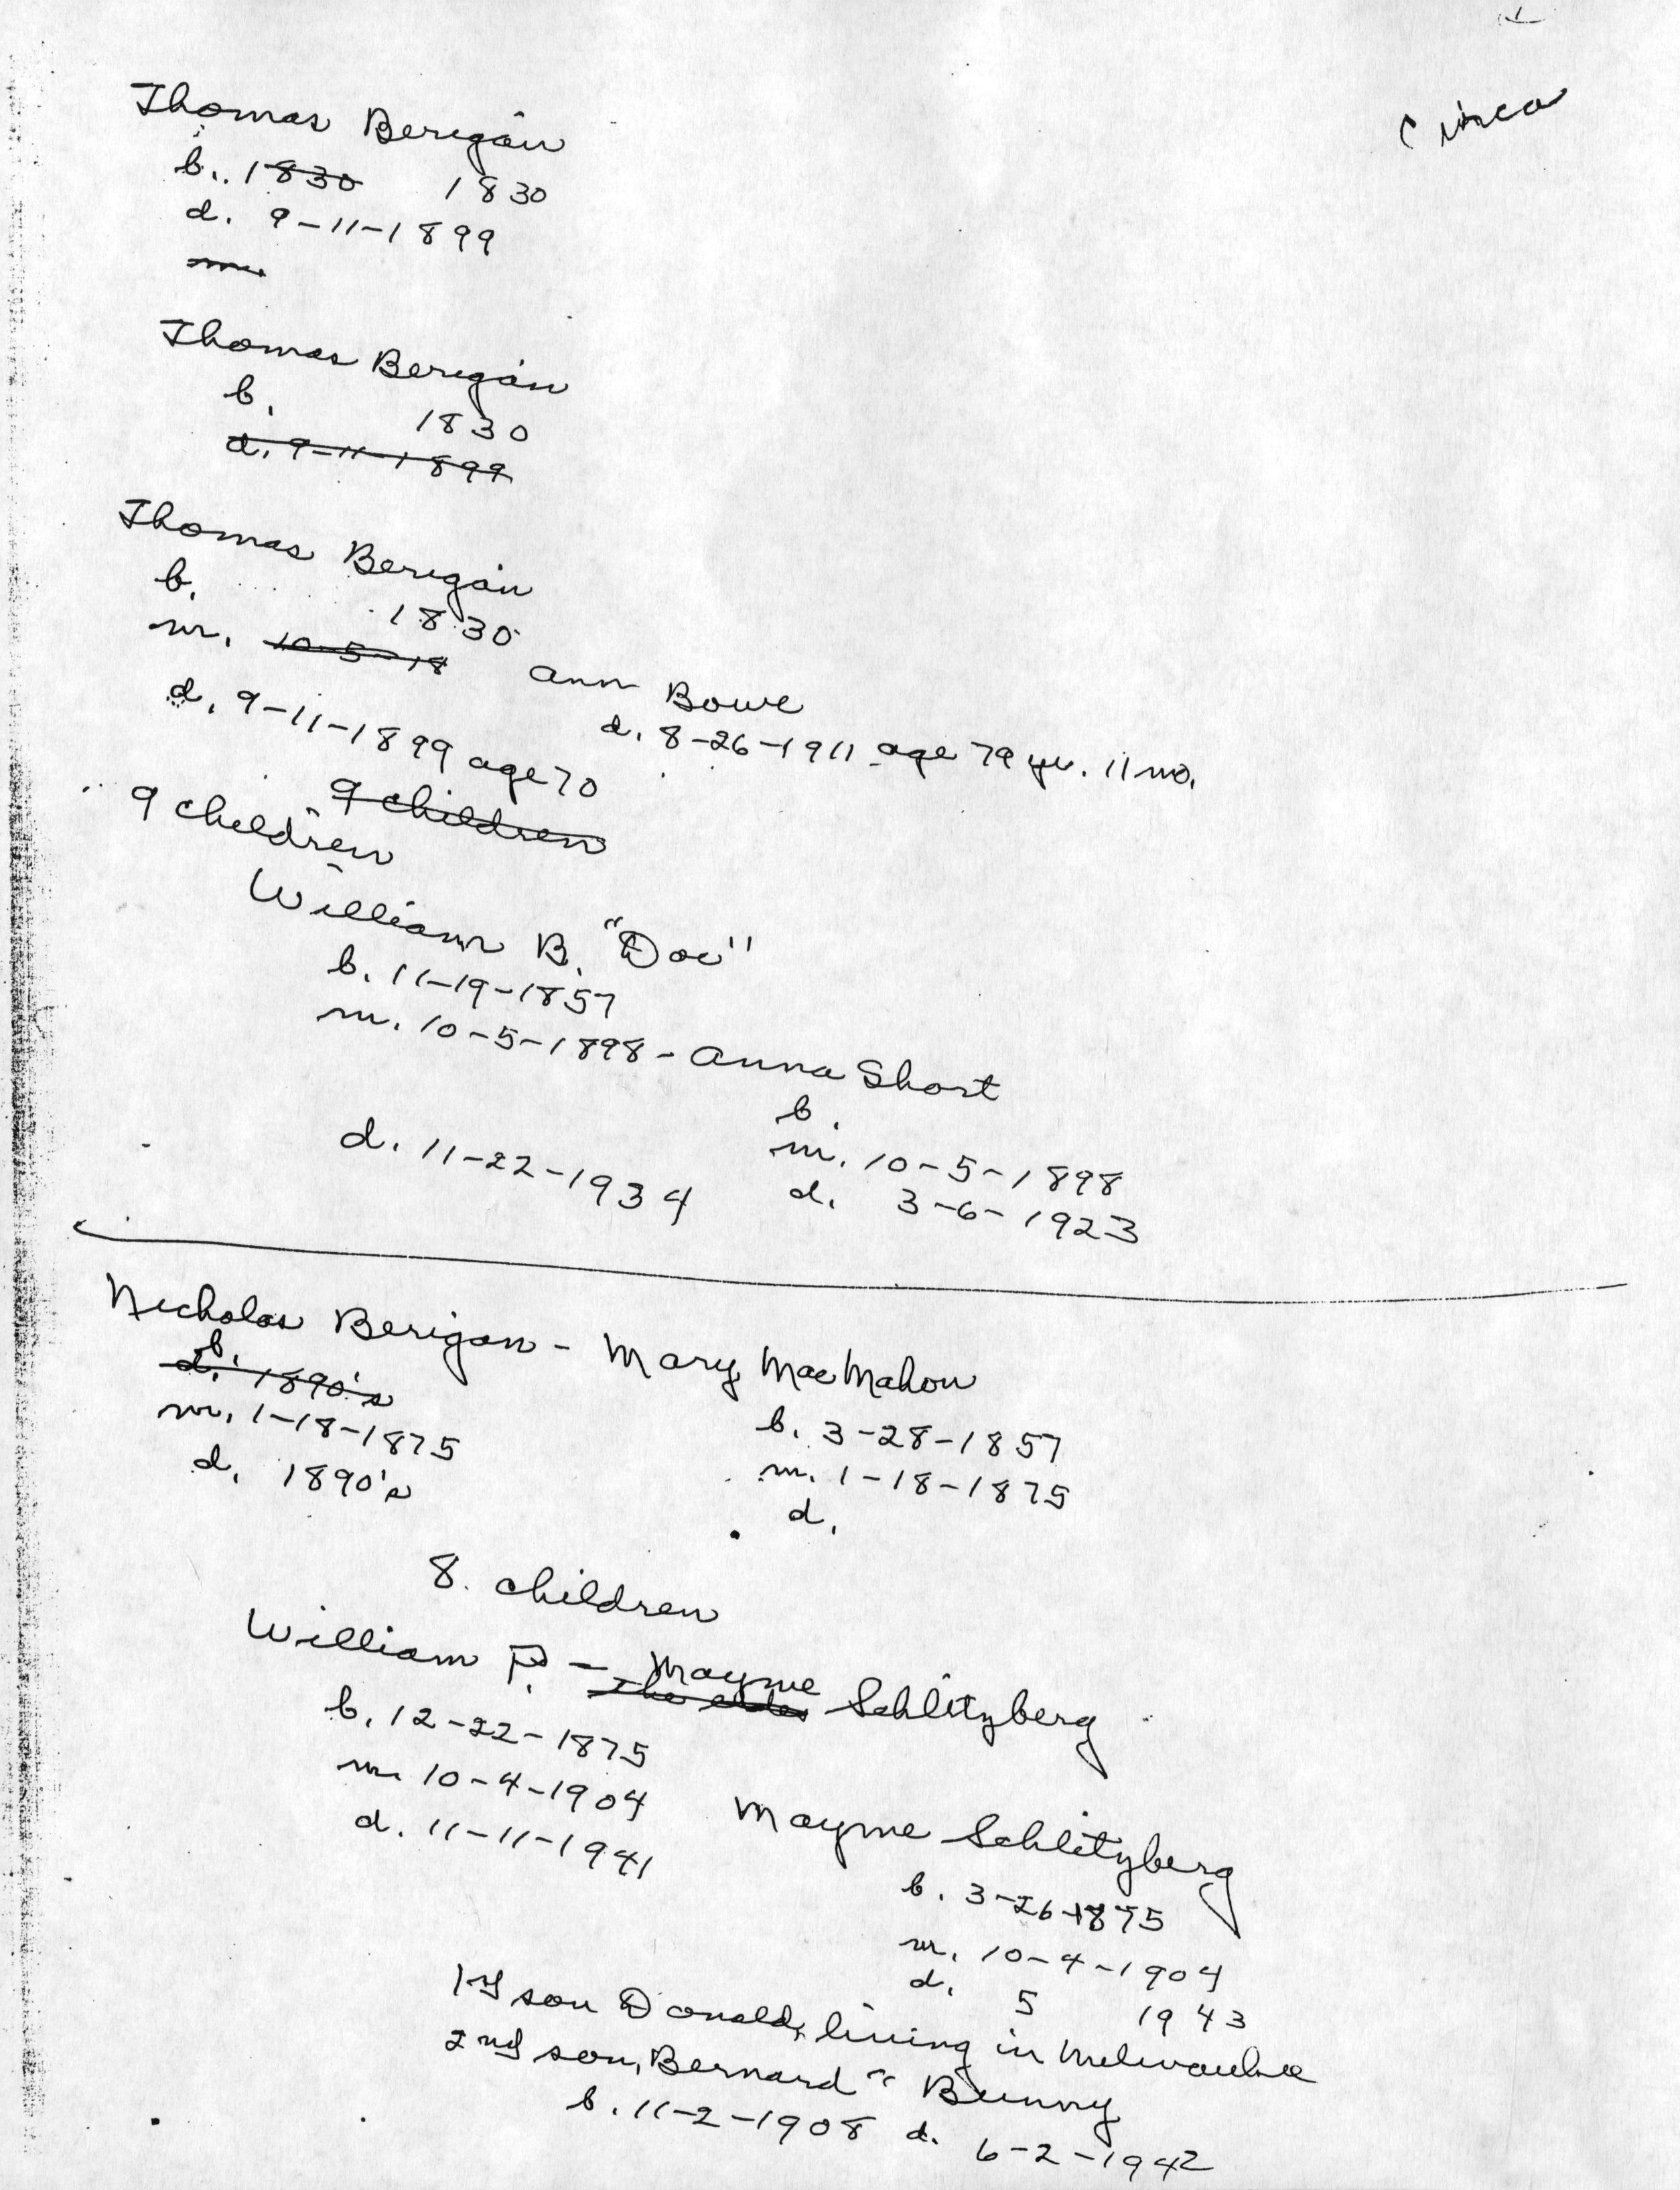 Circa
Thomas Berigan
b. 1830 1830
d. 9-11-1899
m.
Thomas Berigan
b. 1830
d. 9-11-1899
Thomas Berigan
b. 1830
m. 10-5-18 Ann Bowe
d. 9-11-1899 age 70 d. 8-26-1911 age 79 yr. 11 mo.
9 children
9 children
William B. "Doc"
b. 11-19-1857
m. 10-5-1898 - Anna Short
b.
m. 10-5-1898
d. 11-22-1934 d. 3-6-1923
Nicholas Berigan - Mary MacMahon
b.
d. 1890's b. 3-28-1857
m. 1-18-1875 m. 1-18-1875
d. 1890's d.
8 children
William P. - Mayme Schlitzberg
b. 12-22-1875
m. 10-4-1904
d. 11-11-1941
Mayme Schlitzberg
b. 3-26-1875
m. 10-4-1904
d. 5 1943
1st son Donald, living in Milwaukee
2nd son, Bernard " Bunny
b. 11-2-1908 d. 6-2-1942